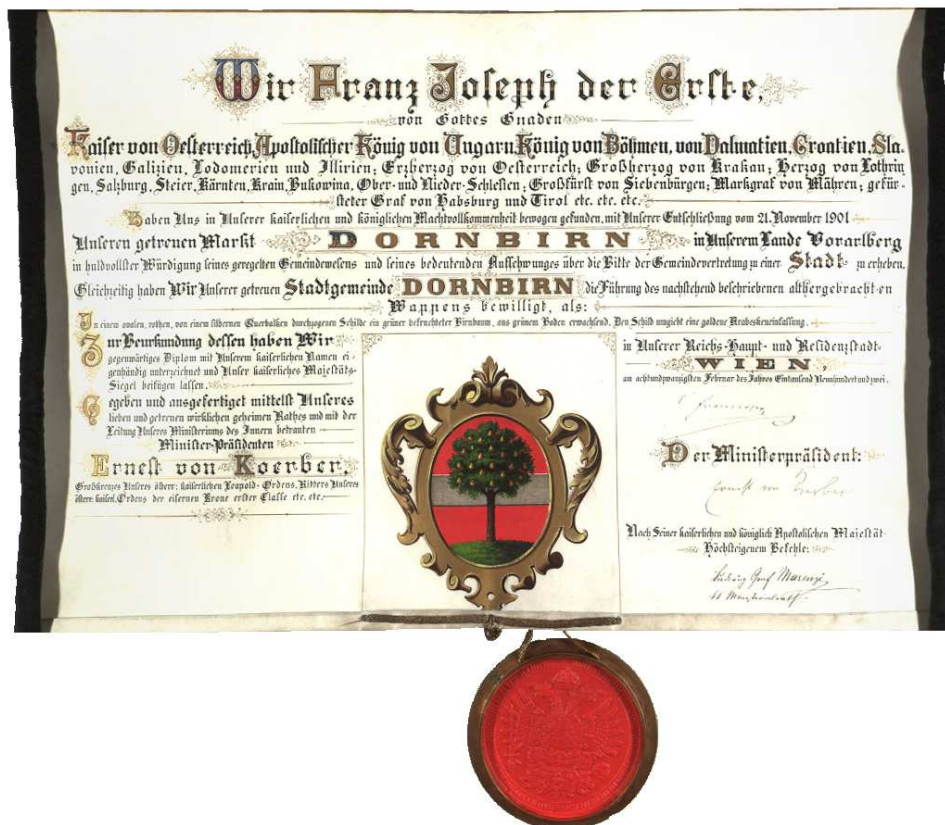 Wir Franz Joseph der Erste,
von Gottes Gnaden
Kaiser von Oesterreich, Apostolischer König von Ungarn, König von Böhmen, von Dalmatien, Croatien, Sla-
vonien, Galizien, Lodomerien und Illirien; Erzherzog von Oesterreich; Großherzog von Krakau; Herzog von Lothrin
gen, Salzburg, Steier, Kärnten, Krain, Bukowina, Ober- und Nieder-Schlesien; Großfürst von Siebenbürgen; Markgraf von Mähren; gefür-
steter Graf von Habsburg und Tirol etc. etc. etc.
Haben Uns in Unserer kaiserlichen und königlichen Machtvollkommenheit bewogen gefunden, mit Unserer Entschließung vom 21. November 1901
Unseren getreuen Markt DORNBIRN in Unserem Lande Vorarlberg
in huldvollster Würdigung seines geregelten Gemeindewesens und seines bedeutenden Aufschwunges über die Bitte der Gemeindevertretung zu einer Stadt zu erheben.
Gleichzeitig haben Wir Unserer getreuen Stadtgemeinde DORNBIRN die Führung des nachstehend beschriebenen althergebrachten
Wappens bewilligt, als:
In einem ovalen, rothen, von einem silbernen Querbalken durchzogenen Schilde ein grüner befruchteter Birnbaum, aus grünem Boden erwachsend. Den Schild umgiebt eine goldene Arabeskeneinfassung.
Zur Beurkundung dessen haben Wir
gegenwärtiges Diplom mit Unserem kaiserlichen Namen ei-
genhändig unterzeichnet und Unser kaiserliches Majestäts-
Siegel beifügen lassen.
Gegeben und ausgefertiget mittelst Unseres
lieben und getreuen wirklichen geheimen Rathes und mit der
Leitung Unseres Ministeriums des Innern betrauten
Minister-Präsidenten
Ernest von Koerber,
Großkreuzes Unseres österr: kaiserlichen Leopold-Ordens, Ritters Unseres
österr: kaiserl. Ordens der eisernen Krone erster Classe etc. etc.
in Unserer Reichs-Haupt- und Residenzstadt
WIEN,
am achtundzwanzigsten Februar des Jahres Eintausend Neunhundert und zwei.
Der Ministerpräsident:
Ernest von Koerber
Nach Seiner kaiserlichen und königlich Apostolischen Majestät
Höchsteigenem Befehle:
Ludwig Graf Marenzi